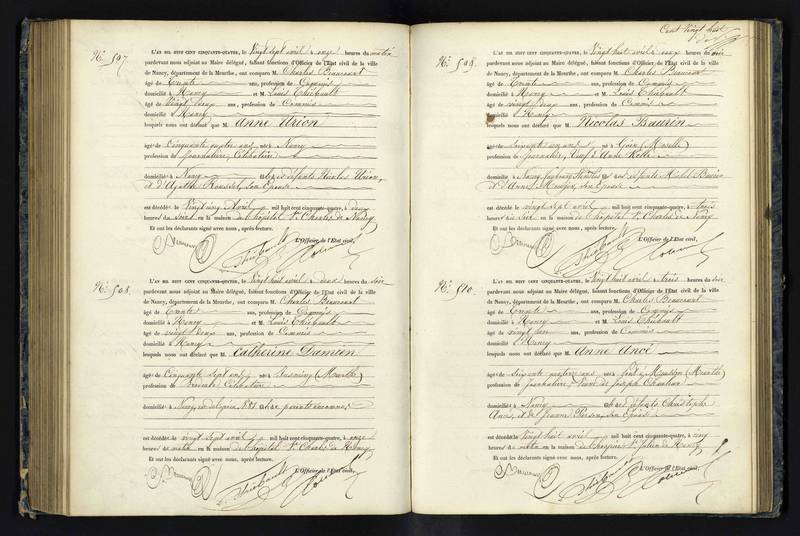 N.º 507
L'AN MIL HUIT CENT CINQUANTE-QUATRE, le vingt sept avril à onze heures du matin
pardevant nous adjoint au Maire délégué, faisant fonctions d'Officier de l'Etat civil de la ville
de Nancy, département de la Meurthe, ont comparu M. Charles Beaucourt
âgé de Trente ans, profession de Commis
domicilié à Nancy et M. Louis Thiébault
âgé de vingt deux ans, profession de Commis
domicilié à Nancy
lesquels nous ont déclaré que M. Anne Urion
âgée de Cinquante quatre ans né à Nancy
profession de Journalière, Célibataire
domicilié à Nancy défunts Nicolas Urion,
et d'Agathe Roussel, son Epouse
est décédé le Vingt six Avril mil huit cent cinquante-quatre, à deux
heures du Soir en la maison de l'hôpital St. Charles de Nancy
Et ont les déclarants signé avec nous, après lecture.
L'Officier de l'Etat civil,
Thiébault
N.º 508
L'AN MIL HUIT CENT CINQUANTE-QUATRE, le Vingt huit avril à deux heures du Soir
pardevant nous adjoint au Maire délégué, faisant fonctions d'Officier de l'Etat civil de la ville
de Nancy, département de la Meurthe, ont comparu M. Charles Beaucourt
âgé de Trente ans, profession de Commis
domicilié à Nancy et M. Louis Thiébault
âgé de vingt deux ans, profession de Commis
domicilié à Nancy
lesquels nous ont déclaré que M. Catherine Damien
âgée de Cinquante sept ans né à (Meurthe)
profession de Célibataire
domicilié à Nancy
est décédé le vingt sept avril mil huit cent cinquante-quatre, à onze
heures du matin en la maison de l'hôpital St. Charles de Nancy
Et ont les déclarants signé avec nous, après lecture.
L'Officier de l'Etat civil,
Thiébault
Cent Vingt huit
N.º 509
L'AN MIL HUIT CENT CINQUANTE-QUATRE, le Vingt huit avril à deux heures du Soir
pardevant nous adjoint au Maire délégué, faisant fonctions d'Officier de l'Etat civil de la ville
de Nancy, département de la Meurthe, ont comparu M. Charles Beaucourt
âgé de Trente ans, profession de Commis
domicilié à Nancy et M. Louis Thiébault
âgé de vingt deux ans, profession de Commis
domicilié à Nancy
lesquels nous ont déclaré que M. Nicolas Baurin
âgé de Soixante un ans né à Goin (Moselle)
profession de Journalier, Veuf d'Anne
domicilié à Nancy, faubourg Stanislas défunts Michel Baurin
et d'Anne Mangin, son Epouse
est décédé le vingt sept avril mil huit cent cinquante-quatre, à trois
heures du Soir en la maison de l'hôpital St. Charles de Nancy
Et ont les déclarants signé avec nous, après lecture.
L'Officier de l'Etat civil,
Thiébault
N.º 510
L'AN MIL HUIT CENT CINQUANTE-QUATRE, le Vingt huit avril à trois heures du Soir
pardevant nous adjoint au Maire délégué, faisant fonctions d'Officier de l'Etat civil de la ville
de Nancy, département de la Meurthe, ont comparu M. Charles Beaucourt
âgé de Trente ans, profession de Commis
domicilié à Nancy et M. Louis Thiébault
âgé de vingt deux ans, profession de Commis
domicilié à Nancy
lesquels nous ont déclaré que M. Anne Ancé
âgée de Soixante quatre ans né à Pont à Mousson (Meurthe)
profession de Journalière Veuve de Joseph
domicilié à Nancy défunts Christophe
Ancé, et de Jeanne son Epouse
est décédé le Vingt huit avril mil huit cent cinquante-quatre, à cinq
heures du matin en la maison de l'hospice St. Julien de Nancy
Et ont les déclarants signé avec nous, après lecture.
L'Officier de l'Etat civil,
Thiébault